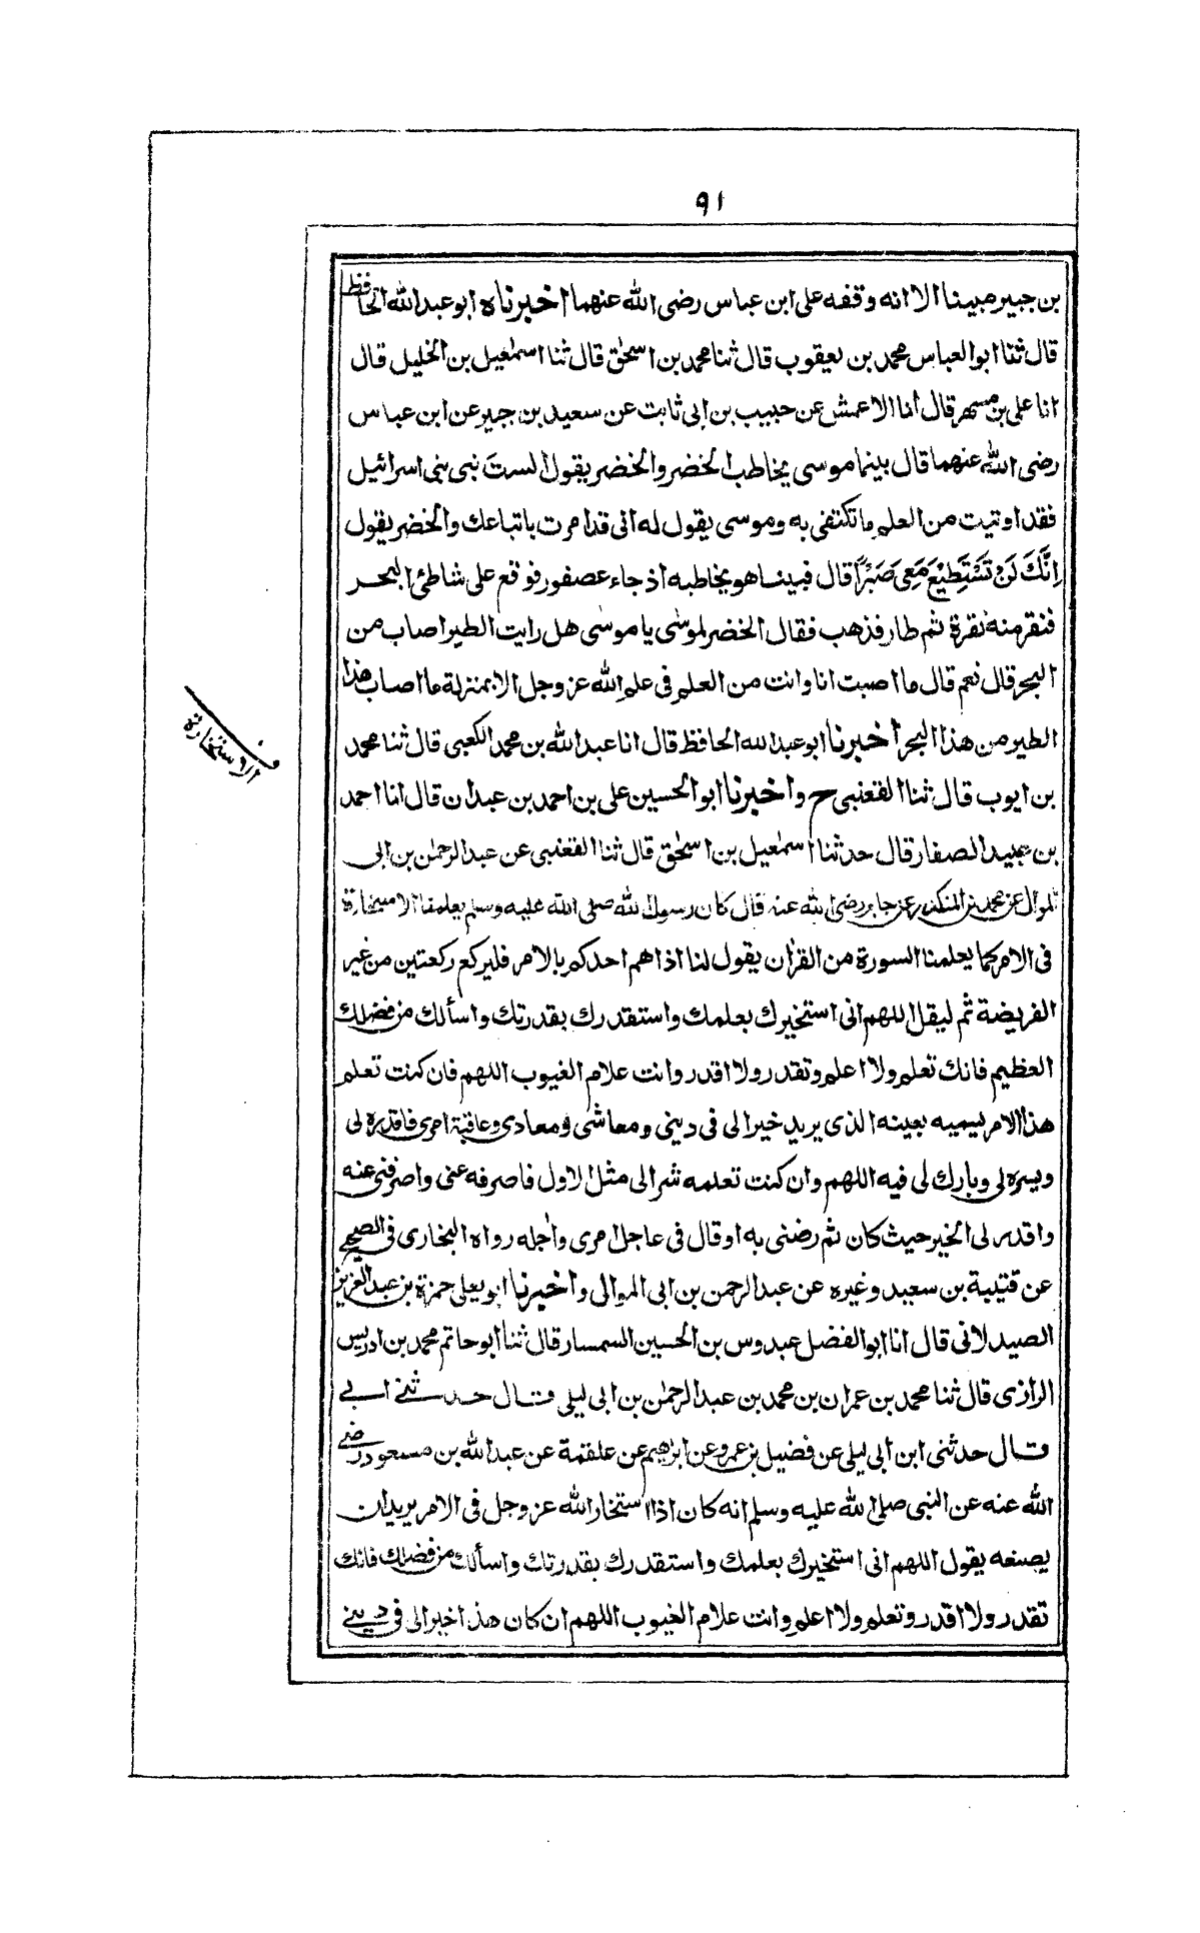 ٩١
بن جبير مبينا الا انه وقفه على ابن عباس رضى الله عنهما اخبرناه ابو عبد الله الحافظ
قال ثنا ابو العباس محمد بن يعقوب قال ثنا محمد بن اسحٰق قال ثنا اسمٰعيل بن الخليل قال
انا على بن مسهر قال انا الاعمش عن حبيب بن ابى ثابت عن سعيد بن جبير عن ابن عباس
رضى الله عنهما قال بينما موسى يخاطب الخضر والخضر يقول الستَ نبى بنى اسرائيل
فقد اوتيت من العلم ما تكتفى به وموسى يقول له انى قد امرت باتباعك والخضر يقول
اِنَّكَ لَنْ تَسْتَطِيْعَ مَعِىَ صَبْرًا قال فبينا هو يخاطبه اذ جاء عصفور فوقع على شاطئ البحر
فنقر منه نقرة ثم طار فذهب فقال الخضر لموسٰى يا موسٰى هل رايت الطير اصاب من
البحر قال نعم قال ما اصبت انا وانت من العلم فى علم الله عز وجل الا بمنزلة ما اصاب هذا
الطير من هذا البحر اخبرنا ابو عبد الله الحافظ قال انا عبد الله بن محمد الكعبى قال ثنا محمد
بن ايوب قال ثنا القعنبى ح واخبرنا ابو الحسين على بن احمد بن عبدان قال انا احمد
بن عبيد الصفار قال حدثنا اسمٰعيل بن اسحٰق قال ثنا القعنبى عن عبد الرحمٰن بن ابى
الموال عن محمد بن المنكدر عن جابر رضى الله عنه قال كان رسول الله صلى الله عليه وسلم يعلمنا الاستخارة
فى الامر كما يعلمنا السورة من القرٰان يقول لنا اذا هم احدكم بالامر فليركع ركعتين من غير
الفريضة ثم ليقل اللهم انى استخيرك بعلمك واستقدرك بقدرتك واسألك من فضلك
العظيم فانك تعلم ولا اعلم وتقدر ولا اقدر وانت علام الغيوب اللهم فان كنت تعلم
هذا الامر يسميه بعينه الذى يريد خيرا لى فى دينى ومعاشى ومعادى وعاقبة امرى فاقدره لى
ويسره لى وبارك لى فيه اللهم وان كنت تعلمه شرا لى مثل الاول فاصرفه عنى واصرفنى عنه
واقدر لى الخير حيث كان ثم رضنى به او قال فى عاجل امرى واٰجله رواه البخارى فى الصحيح
عن قتيبة بن سعيد وغيره عن عبد الرحمن بن ابى الموال واخبرنا ابو يعلى حمزة بن عبد العزيز
الصيدلانى قال انا ابو الفضل عبدوس بن الحسين السمسار قال ثنا ابو حاتم محمد بن ادريس
الرازى قال ثنا محمد بن عمران بن محمد بن عبد الرحمٰن بن ابى ليلى قال حدثنى ابى
قال حدثنى ابن ابى ليلى عن فضيل بن عمرو عن ابراهيم عن علقمة عن عبد الله بن مسعود رضى
الله عنه عن النبى صلى الله عليه وسلم انه كان اذا استخار الله عز وجل فى الامر يريد ان
يصنعه يقول اللهم انى استخيرك بعلمك واستقدرك بقدرتك واسألك من فضلك فانك
تقدر ولا اقدر وتعلم ولا اعلم وانت علام الغيوب اللهم ان كان هذا خيرا لى فى دينى
ف
الاستخارة